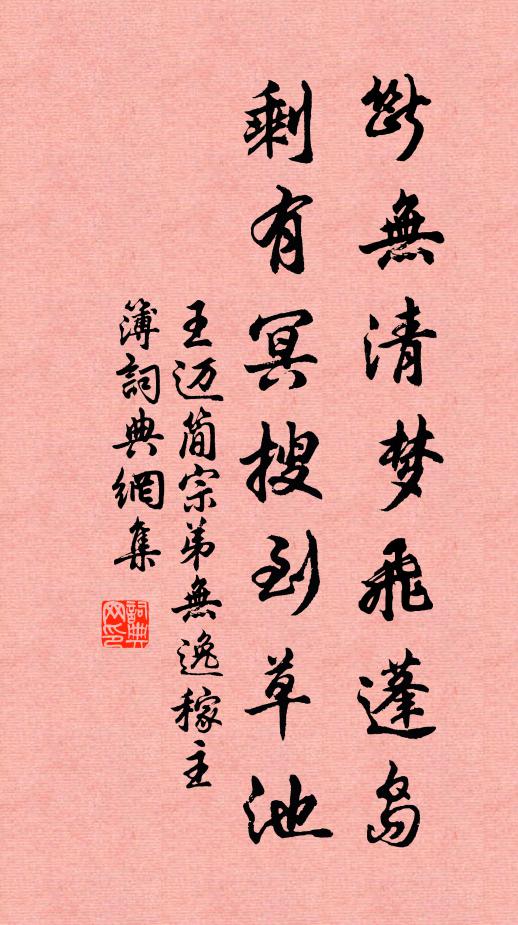 斷無清梦飛蓬島
剩有冥搜到草池
王迈简宗弟無逸稼主
簿詞典網集
詞典網印